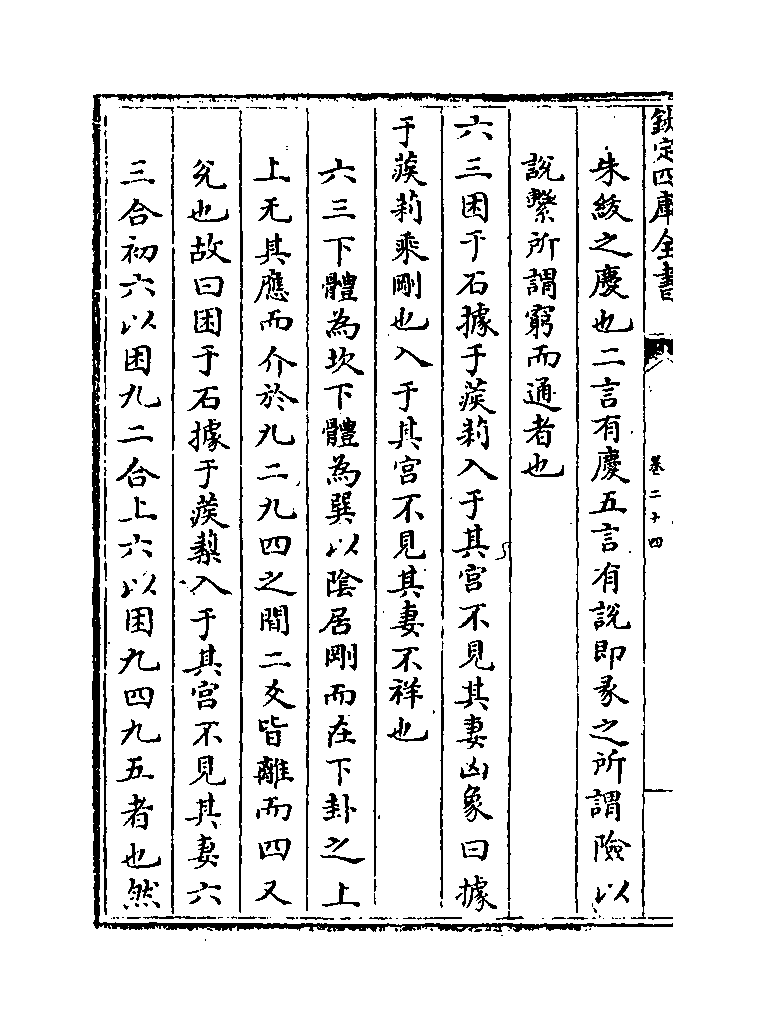 欽定四庫全書
卷二十四
朱紱之慶也二言有慶五言有說即彖之所謂險以
說繫所謂窮而通者也
六三困于石據于蒺蔾入于其宮不見其妻凶象曰據
于蒺蔾乘剛也入于其宮不見其妻不祥也
六三下體為坎下體為巽以陰居剛而在下卦之上
上无其應而介於九二九四之間二爻皆離而四又
兊也故曰困于石據于蒺蔾入于其宮不見其妻六
三合初六以困九二合上六以困九四九五者也然